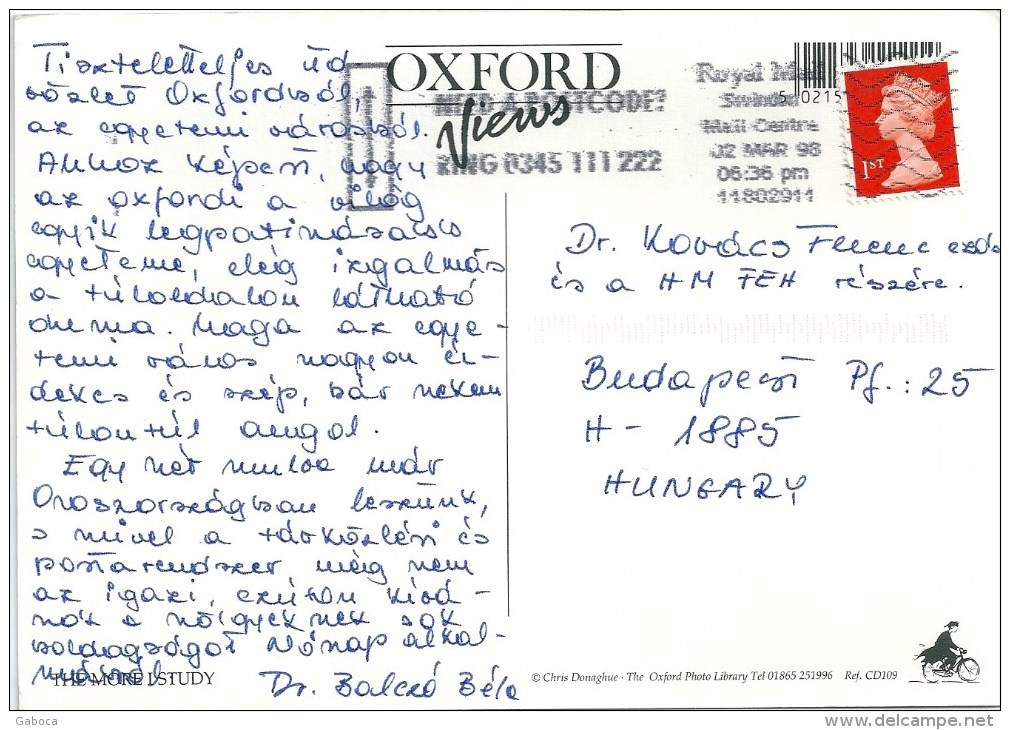 Tiszteletteljes üd
vözlet Oxfordból,
az egyetemi városból.
Ahhoz képest, hogy
az oxfordi a világ
egyik legpatinásabb
egyeteme, elég izgalmas
a túloldalon látható
dilemma. Maga az egye-
temi város nagyon ér-
dekes és szép, bár nekem
túlontúl angol.
Egy hét múlva már
Oroszországban leszünk,
s mivel a távközlési és
postarendszer, még nem
az igazi, ezúton kívá-
nok a hölgyeknek sok
boldogságot Nőnap alkal-
mából.
Dr. Balczó Béla
THE MORE I STUDY
OXFORD
Views
NEED A POSTCODE?
RING 0345 111 222
Royal Mail
Swindon
Mail Centre
02 MAR 98
06:36 pm
11802911
5 0215
1ST
Dr. Kovács Ferenc ezds
és a HM FEH részére.
Budapest Pf.: 25
H - 1885
HUNGARY
© Chris Donaghue · The Oxford Photo Library Tel 01865 251996 Ref. CD109
Gaboca
www.delcampe.net